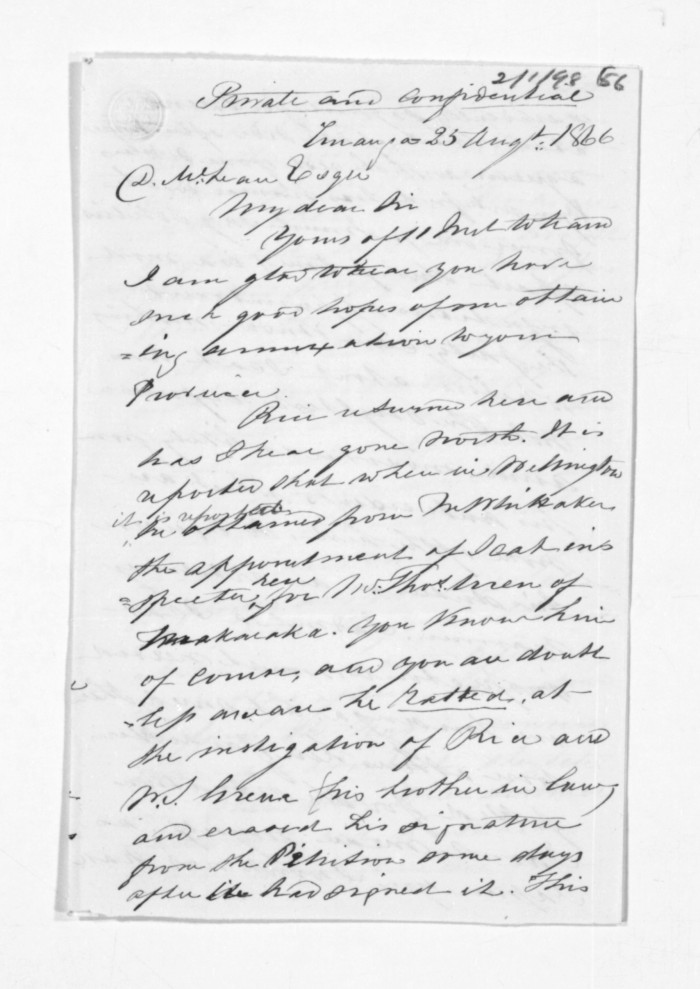 2/1/98 56
Private and Confidential
Turanga 25 Augt. 1866
D. McLean Esqre
My dear Sir
Yours of 11 Inst to hand
I am glad to hear you have
such good hopes of our obtain
=ing annexation to your
Province.
Rice returned here and
has I hear gone North. It is
reported that when in Wellington
it is reported
he obtained from Mr Whitaker
the appointment of Scab ins
=pector here for Mr. Thos. Uren of
Makaraka. You know him
of course, and you are doubt
=less aware he ratted, at
the instigation of Rice and
W.S. Greene (his brother in law)
and erased his signature
from the Petition some days
after he had signed it. This